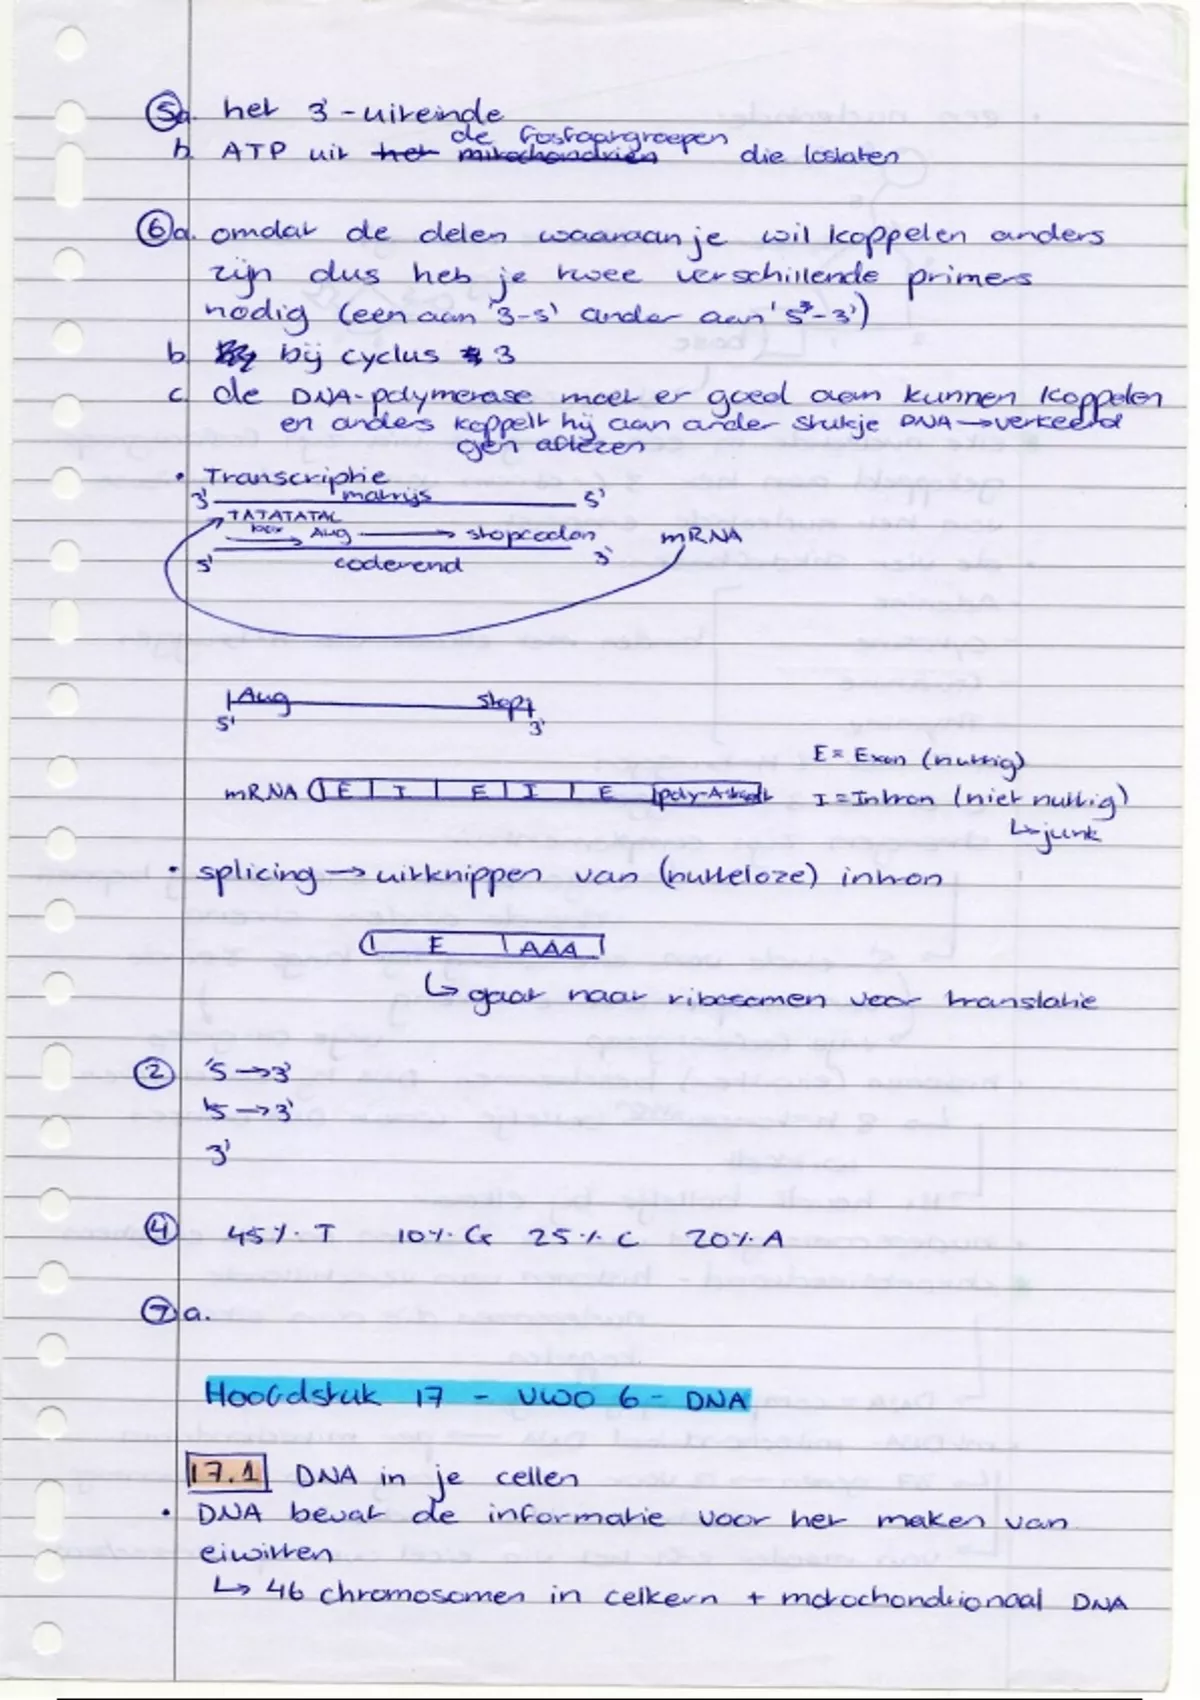 5a. het 3'-uiteinde
b. ATP uit het mitochondriën de fosfaatgroepen die loslaten
6a. omdat de delen waaraan je wil koppelen anders
zijn dus heb je twee verschillende primers
nodig (een aan '3-5' ander aan '5-3')
b. bij cyclus 3
c. de DNA-polymerase moet er goed aan kunnen koppelen
en anders koppelt hij aan ander stukje DNA → verkeerd
gen aflezen
• Transcriptie
3' matrijs 5'
TATATATAC
box Aug → stopcodon mRNA
5' coderend 3'
Aug stop
5' 3'
E = Exon (nuttig)
mRNA E I E I E poly-A-staart I = Intron (niet nuttig)
↳ junk
• splicing → uitknippen van (nutteloze) intron
E AAA
↳ gaat naar ribosomen voor translatie
2 '5 → 3'
'5 → 3'
3'
4 45% T 10% G 25% C 20% A
7a.
Hoofdstuk 17 - VWO 6 - DNA
17.1 DNA in je cellen
• DNA bevat de informatie voor het maken van
eiwitten
↳ 46 chromosomen in celkern + motochondrionaal DNA